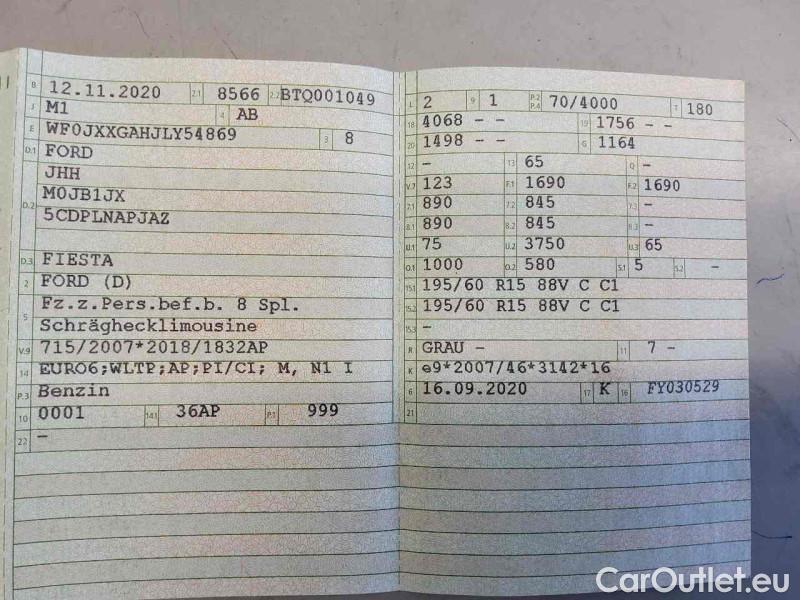 B 12.11.2020 2.1 8566 2.2 BTQ001049
J M1 4 AB
E WF0JXXGAHJLY54869 3 8
D.1 FORD
JHH
D.2 M0JB1JX
5CDPLNAPJAZ
D.3 FIESTA
2 FORD (D)
5 Fz.z.Pers.bef.b. 8 Spl.
Schräghecklimousine
V.9 715/2007*2018/1832AP
14 EURO6;WLTP;AP;PI/CI; M, N1 I
P.3 Benzin
10 0001 14.1 36AP P.1 999
22 -
L 2 9 1 P.2 P.4 70/4000 T 180
18 4068 - - 19 1756 - -
20 1498 - - G 1164
12 - 13 65 Q -
V.7 123 F.1 1690 F.2 1690
7.1 890 7.2 845 7.3 -
8.1 890 8.2 845 8.3 -
U.1 75 U.2 3750 U.3 65
O.1 1000 O.2 580 S.1 5 S.2 -
15.1 195/60 R15 88V C C1
15.2 195/60 R15 88V C C1
15.3 -
R GRAU - 11 7 -
K e9*2007/46*3142*16
6 16.09.2020 17 K 16 FY030529
21
CarOutlet.eu